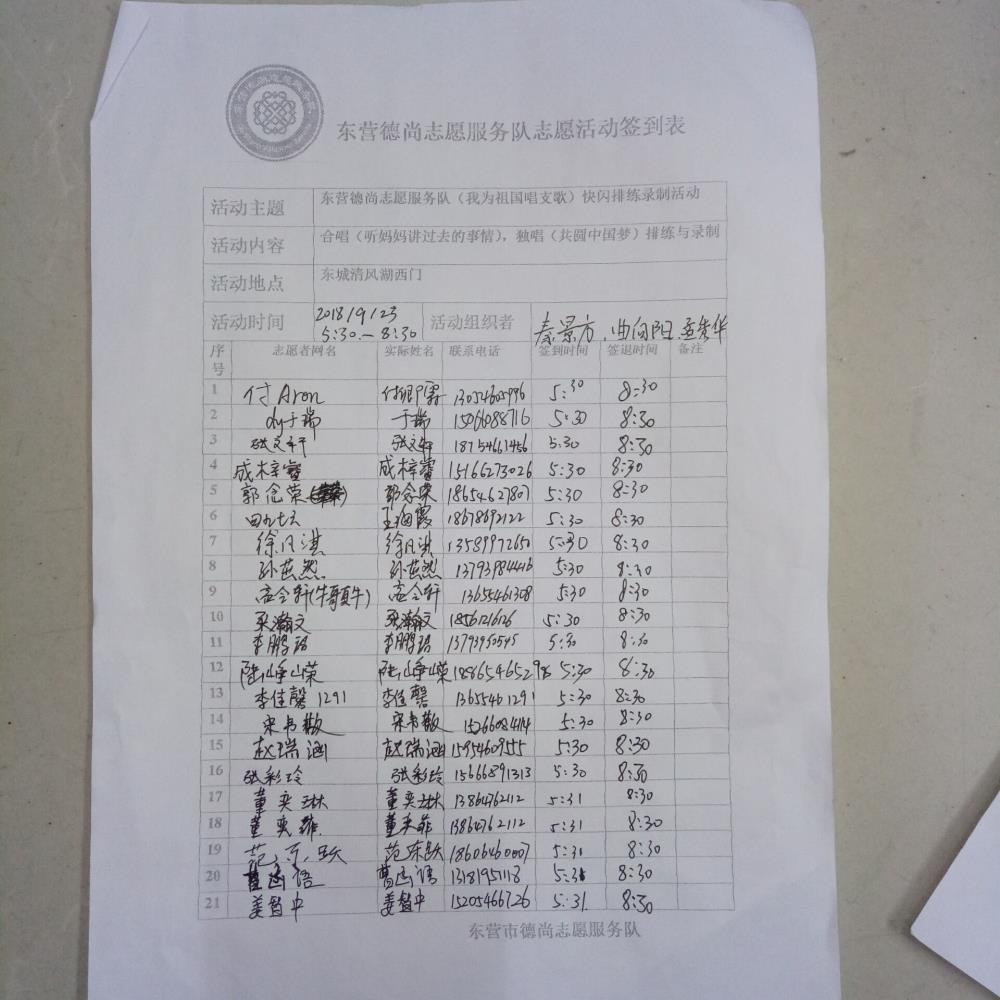 东营德尚志愿服务队志愿活动签到表
活动主题 东营德尚志愿服务队（我为祖国唱支歌）快闪排练录制活动
活动内容 合唱（听妈妈讲过去的事情），独唱（共圆中国梦）排练与录制
活动地点 东城清风湖西门
活动时间 2018/9/23 5:30—8:30 活动组织者 秦景方、曲向阳、孟贵华
序号 志愿者网名 实际姓名 联系电话 签到时间 签退时间 备注
1 付Aron 13054605996 5:30 8:30
2 dy于瑞 于瑞 15066088716 5:30 8:30
3 张文轩 张文轩 18754661456 5:30 8:30
4 成梓睿 成梓睿 15166273026 5:30 8:30
5 郭念荣 郭念荣 18654627807 5:30 8:30
6 王海霞 18678692122 5:30 8:30
7 徐凡淇 徐凡淇 13589972650 5:30 8:30
8 孙茁然 孙茁然 13793984416 5:30 8:30
9 孟令轩(牛顿牛) 孟令轩 13655461308 5:30 8:30
10 瀚文 瀚文 1856121626 5:30 8:30
11 李鹏 李鹏 13793950545 5:30 8:30
12 陆峥嵘 陆峥嵘 18865465298 5:30 8:30
13 李佳馨1291 李佳馨 13655461291 5:30 8:30
14 宋书敏 宋书敏 15266084114 5:30 8:30
15 赵瑞涵 赵瑞涵 15954609555 5:30 8:30
16 张彩玲 张彩玲 15666891313 5:30 8:30
17 董奕琳 董奕琳 13864762112 5:31 8:30
18 董奕菲 董奕菲 13864762112 5:31 8:30
19 范东跃 范东跃 18606460007 5:31 8:30
20 葛函语 葛函语 1318195118 5:31 8:30
21 姜智中 姜智中 15205466726 5:31 8:30
东营市德尚志愿服务队